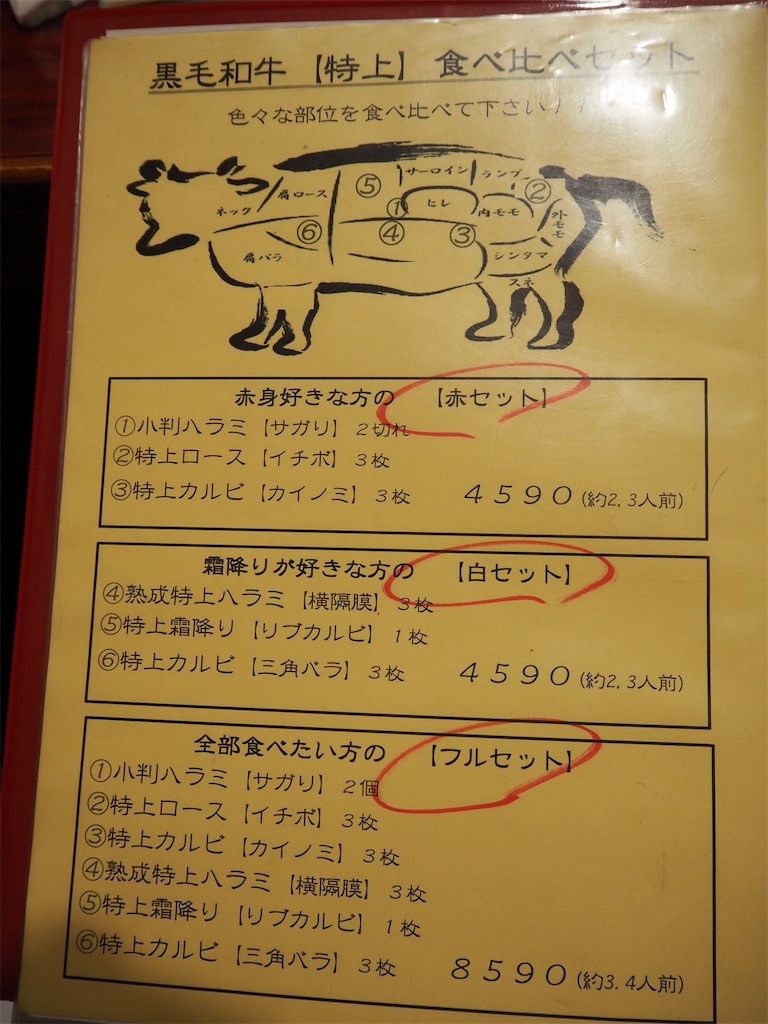 黒毛和牛【特上】食べ比べセット
色々な部位を食べ比べて下さい！！
サーロイン
ランプ
肩ロース
⑤
②
ネック
①
ヒレ
内モモ
外モモ
⑥
④
③
肩バラ
シンタマ
スネ
赤身好きな方の 【赤セット】
①小判ハラミ【サガリ】2切れ
②特上ロース【イチボ】3枚
③特上カルビ【カイノミ】3枚 4590(約2,3人前)
霜降りが好きな方の 【白セット】
④熟成特上ハラミ【横隔膜】3枚
⑤特上霜降り【リブカルビ】1枚
⑥特上カルビ【三角バラ】3枚 4590(約2,3人前)
全部食べたい方の 【フルセット】
①小判ハラミ【サガリ】2個
②特上ロース【イチボ】3枚
③特上カルビ【カイノミ】3枚
④熟成特上ハラミ【横隔膜】3枚
⑤特上霜降り【リブカルビ】1枚
⑥特上カルビ【三角バラ】3枚 8590(約3,4人前)